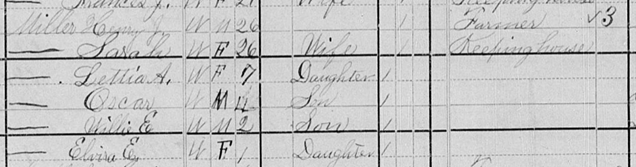 Frances J. W F 21 Wife Keeping house
Miller Henry J W M 26 / Farmer √3
— Sarah W F 26 Wife / Keeping house
— Lettia A. W F 7 Daughter /
— Oscar W M 4 Son /
— Willie E W M 2 Son /
— Elvira E. W F 1 Daughter /